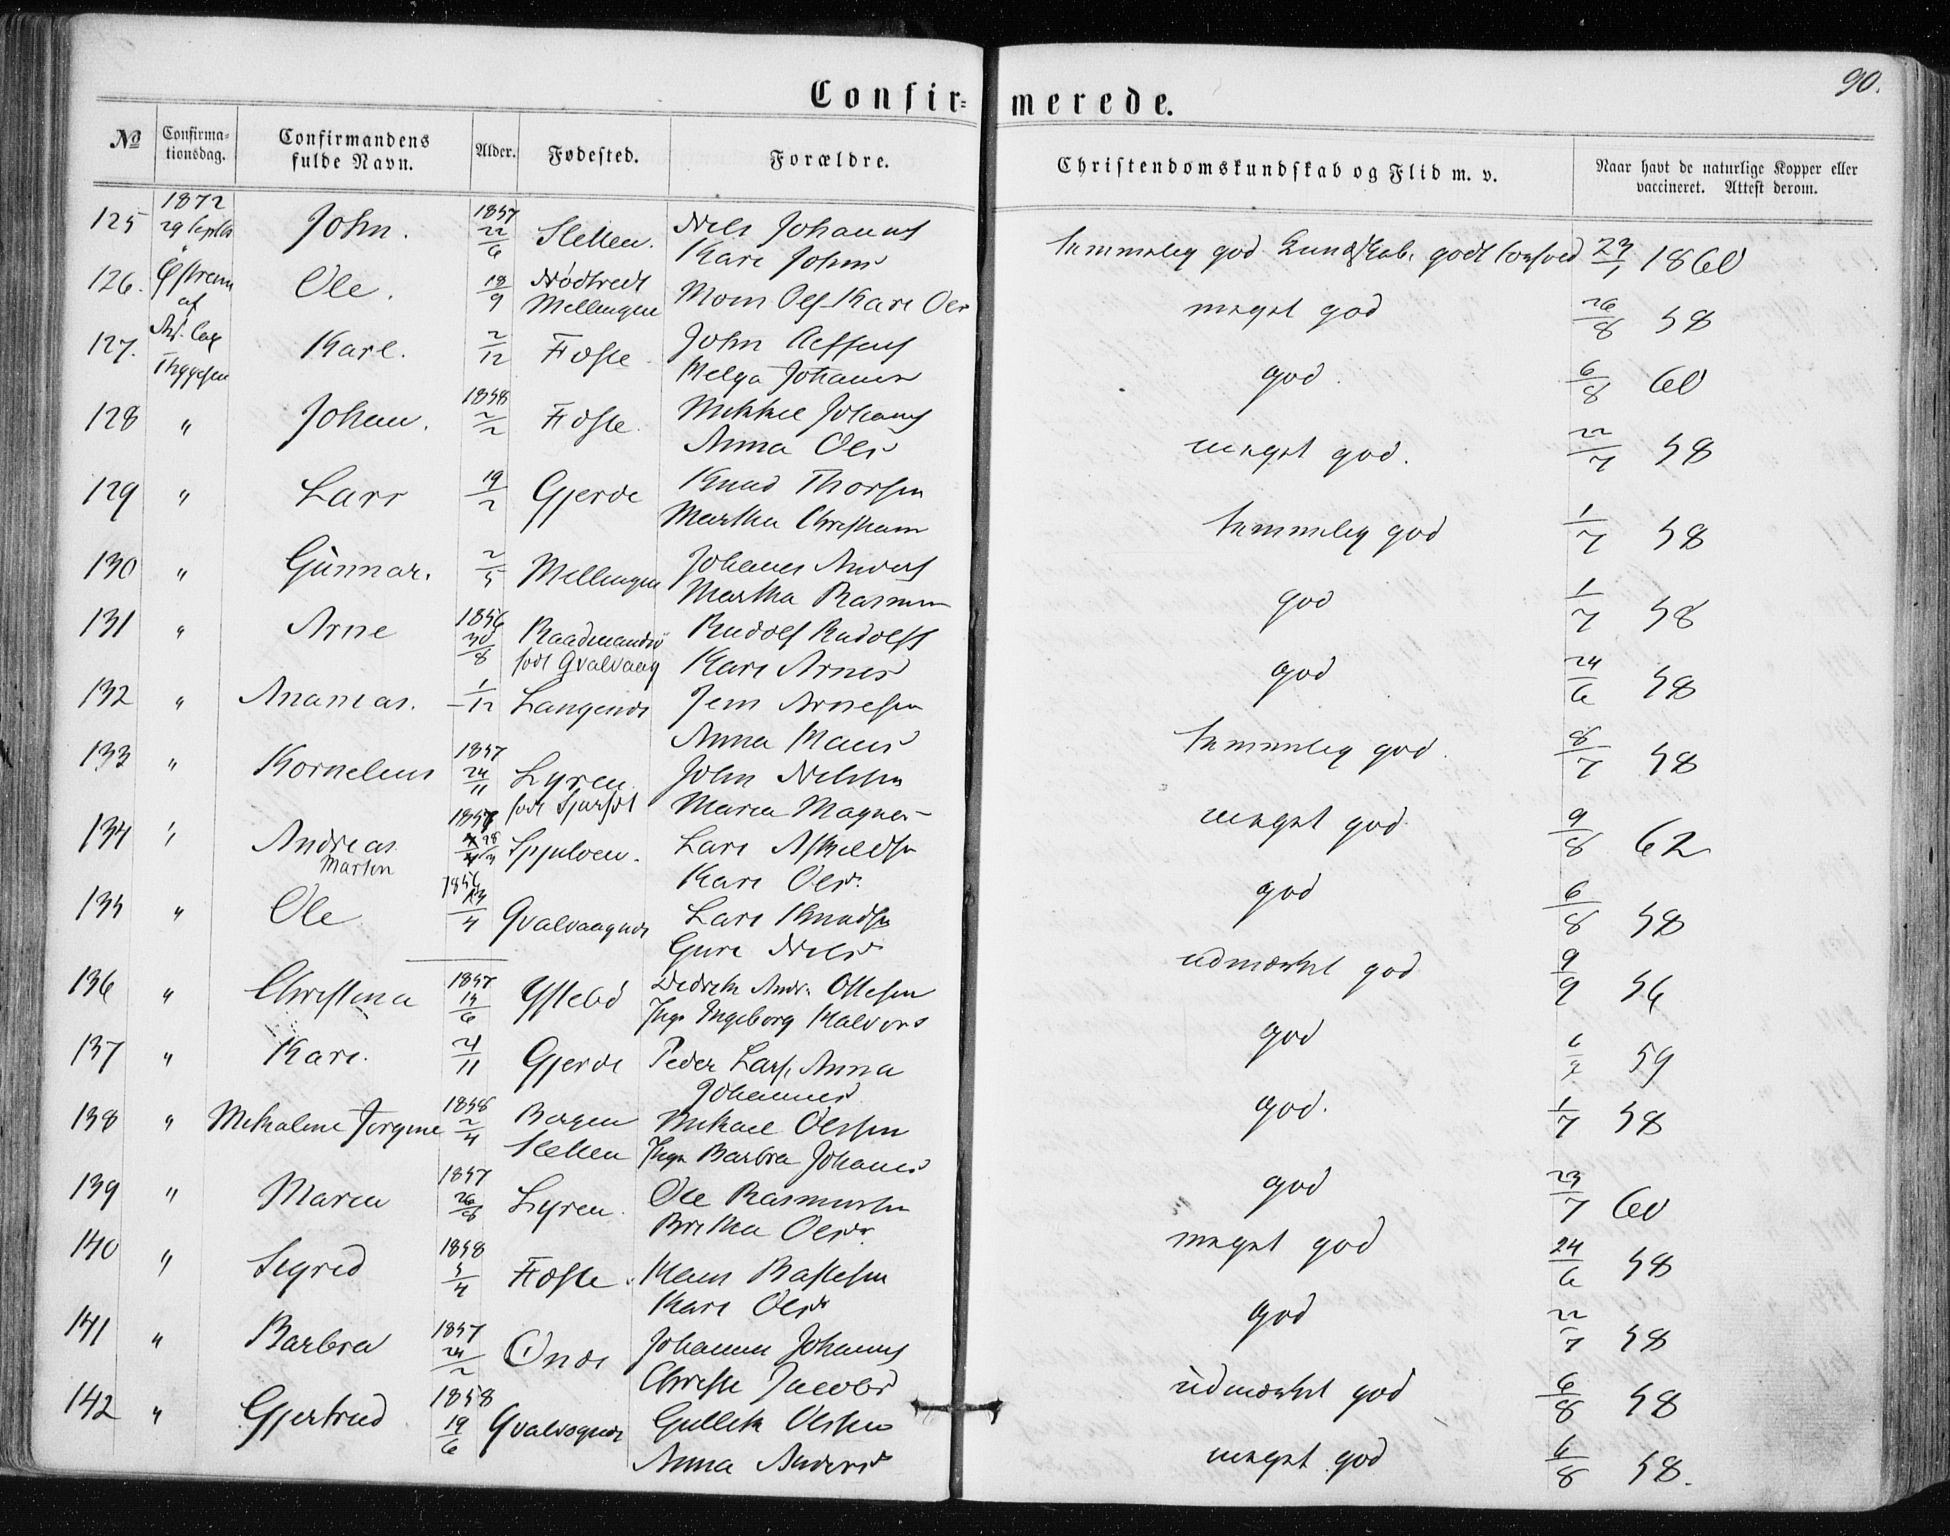 90.
Confir= merede.
№ Confirma=tionsdag. Confirmandens fulde Navn. Alder. Fødested. Forældre. Christendomskundskab og Flid m. v. Naar havt de naturlige Kopper eller vaccineret. Attest derom.
1872
125 29 Septbr John. 1857 22/6 Sletten. Nels Johannes Kari Johns temmelig god Kundskab, godt 23/1 1860
126. Ole. 18/9 Mellingen Mons Ols Kari Ols meget god 26/8 58
af
127. Kari. 2/12 Fosse John Helga Johans god. 6/8 60
Thygesen
128 " Johan. 1858 2/2 Fosse. Mikkel Johans Anna Ols meget god. 22/7 58
129 " Lars 19/2 Gjerde Knud Thorsen Martha temmelig god 1/7 58
130 " Gunnar. 2/5 Mellingen Johannes Anders Martha Rasmus god 1/7 58
131 " Arne 1856 30/8 født Qvalvaag Rudolf Rudolfs Kari Arnes god 24/6 58
132 " Ananias. 1/12 Langenes Jens Arnesen Anna Mons temmelig god. 8/7 58
133 " Kornelius 1857 24/11 Lyren. født John Nilssen Maria Magnes meget god 9/8 62
134 " Andreas Martin Lars Kari Ols. god 6/8 58
135 " Ole 1856 Qvalvaagnes Lars Knuds Guri Nils udmærket god 9/9 56
136 " Christina 1857 14/6 Ystebø Didrik Andr. Ottesen Ingeborg Halvors god 6/7 59
137 " Kari. 21/11 Gjerde Peder Lars, Anna Johannes god. 1/7 58
138 " Mikaline Jørgine 1858 2/4 Bergen Sletten Mikael Olssen Barbra Johans god 23/7 60
139 " Maria 1857 26/8 Lyren. Ole Rasmussen Britha Ols. meget god 24/6 58
140 " Sigrid 1858 5/4 Fosse. Hans Kari Ols god 22/7 58
141 " Barbra 1857 24/2 Johannes Johans Christi Jacobs udmærket god 6/8 58
142 " Gjertrud 1858 19/6 Qvalvognes Gullik Olssen Anna Anders meget god 6/8 58.